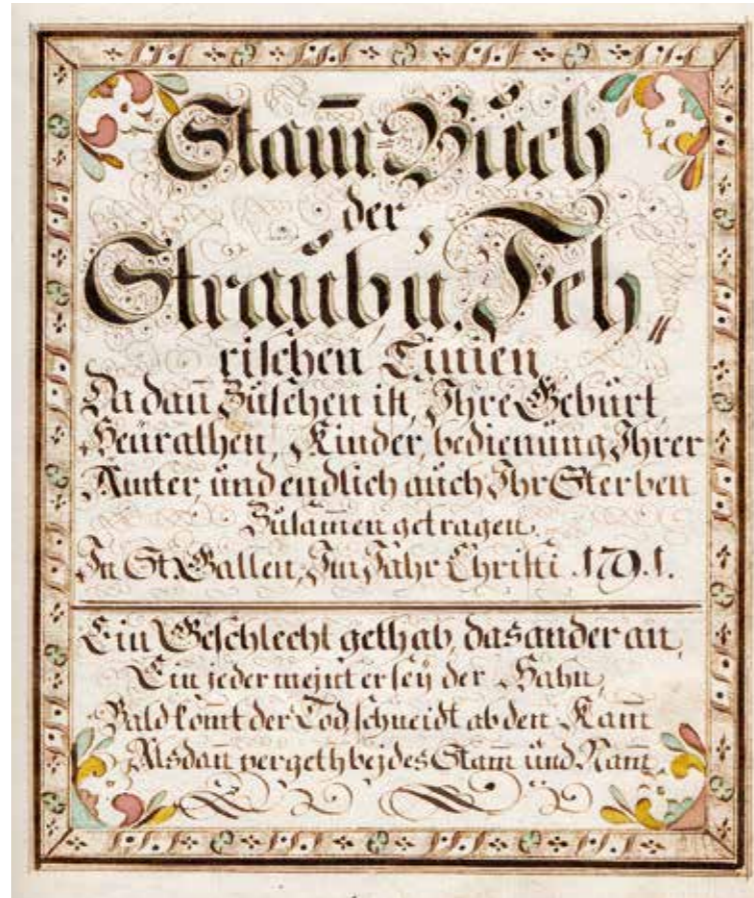 Stam̄-Bŭch
der
Straŭb, u. Feh„
rischen Linien
Da dan̄ Zŭsehen ist, Ihre Gebŭrt,
Heŭrathen, Kinder, bedienŭng Ihrer
Ämter, ŭnd endlich aŭch Ihr Sterben
Zŭsam̄en getragen.
In St. Gallen, Im Jahr Christi 1791.
Ein Geschlecht geth ab, das ander an,
Ein jeder mejnt er seÿ der Hahn,
Bald kom̄t der Tod, schneidt ab den Kam̄
Alsdan̄ vergeth bejdes Stam̄ ŭnd Nam̄